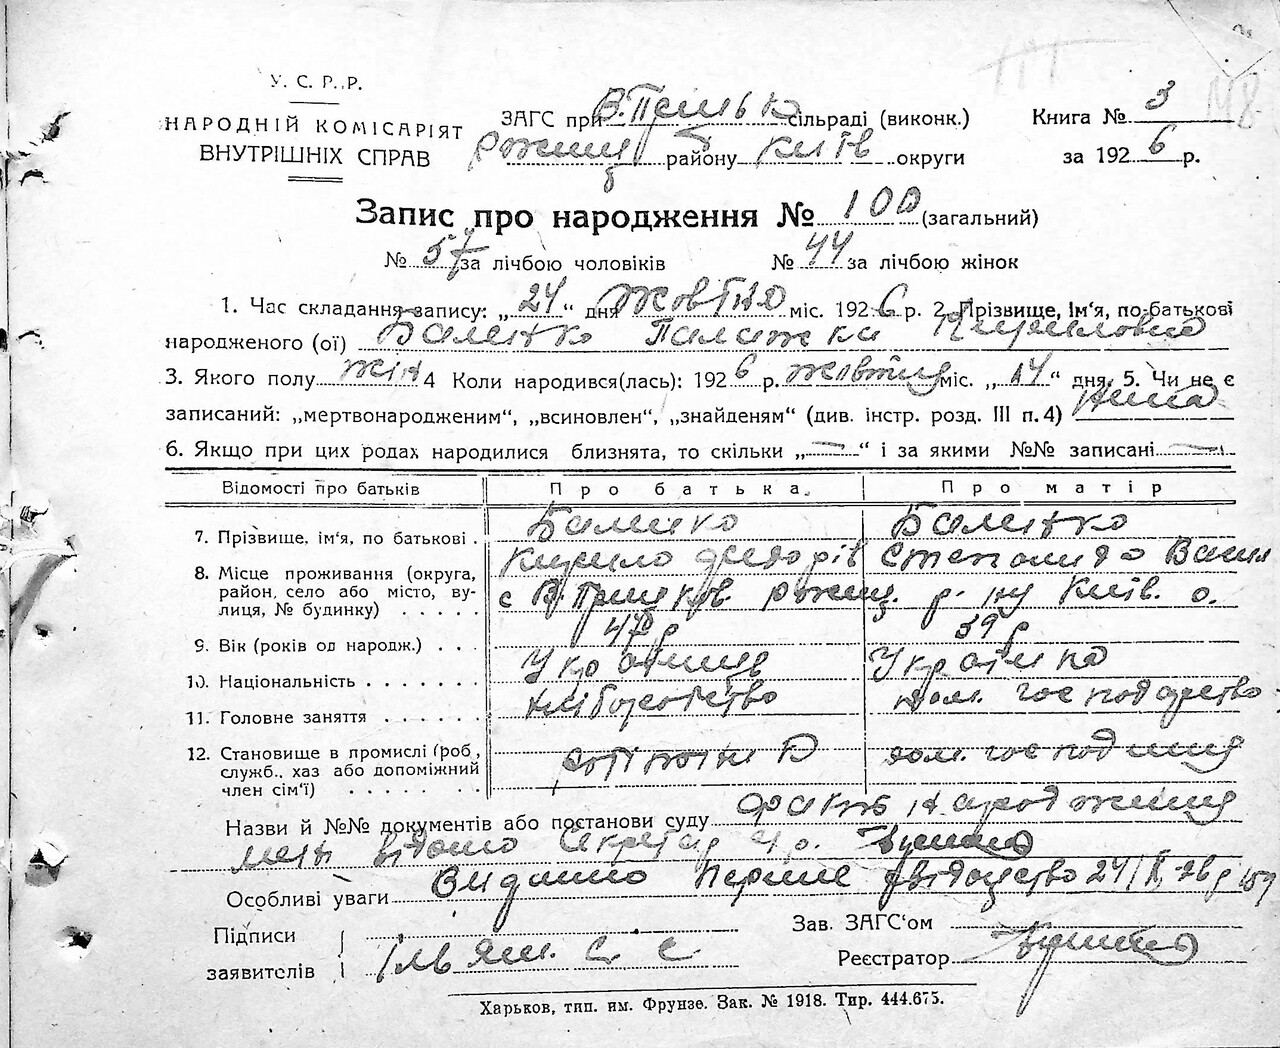 У. С. Р. Р.
НАРОДНІЙ КОМІСАРІЯТ
ВНУТРІШНІХ СПРАВ
ЗАГС при сільраді (виконк.)
району Київ округи
Книга № 3
за 1926 р.
Запис про народження № 100 (загальний)
№ 57 за лічбою чоловіків № 44 за лічбою жінок
1. Час складання запису: „24“ дня жовтня міс. 1926 р. 2. Прізвище, ім'я, по-батькові
народженого (ої) Палажка Кириловна
3. Якого полу жін 4 Коли народився(лась): 1926 р. жовтня міс. „14“ дня. 5. Чи не є
записаний: „мертвонародженим“, „всиновлен“, „знайденям“ (див. інстр. розд. III п. 4)
6. Якщо при цих родах народилися близнята, то скільки „—“ і за якими №№ записані —
Відомості про батьків Про батька Про матір
7. Прізвище, ім'я, по батькові .
Кирило Федорів Степанида Васил
8. Місце проживання (округа,
район, село або місто, ву-
лиця, № будинку) . . . . .
с р-ну Київ. о.
9. Вік (років од народж.) . . . 47 р 39 р
10. Національність . . . . . . . Українець Українка
11. Головне заняття . . . . . . хліборобство дом. господарство
12. Становище в промислі (роб.,
служб., хаз або допоміжний
член сім'ї) . . . . . . . .
дом. господиня
Назви й №№ документів або постанови суду факт народження
мені відомо Секретар
Особливі уваги Видано перше свідоцтво 24/X 26 р
Підписи
заявителів
Зав. ЗАГС'ом
Реєстратор
Харьков, тип. им. Фрунзе. Зак. № 1918. Тир. 444.675.